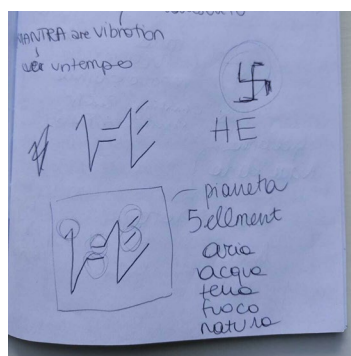 MANTRA are vibration
untempo
HE
HE
pianeta
5 ellment
HE
aria
acqua
terra
fuoco
natura